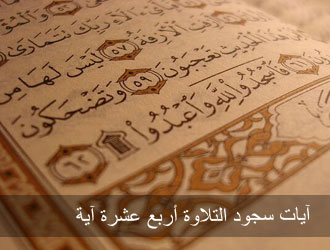 رَبِّكَ تَتَمَارَىٰ
الْآزِفَةُ ٥٧ لَيْسَ لَهَا مِن
الْحَدِيثِ تَعْجَبُونَ ٥٩ وَتَضْحَكُونَ
فَاسْجُدُوا لِلَّهِ وَاعْبُدُوا ۩ ٦٢
آيات سجود التلاوة أربع عشرة آية